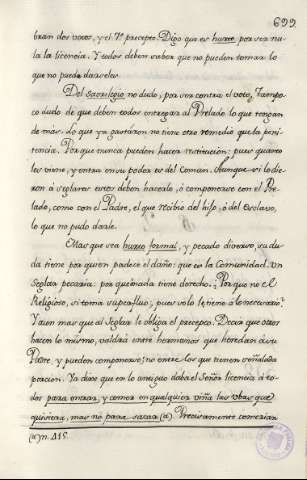 699.
bran dos votos, y el 7º precepto. Digo que es hurto por ser nu-
la la licencia. Y todos deben saber que no pueden tomar lo
que no puede darseles.
Del Sacrilegio no dudo, por ser contra el voto. Tampo-
co dudo de que deben todos entregar al Prelado lo que tengan
de más. lo que ya gastaron no tiene otro remedio que la peni-
tencia. Porque nunca pueden hacer restitución; pues quanto
les viene, y entra en su poder es del Comun. Aunque si lo die-
ron á seglares estos deben hacerla, ó componerse con el Pre-
lado, como con el Padre, el que recibio del hijo, ó del esclavo,
lo que no pudo darle.
Mas que sea hurto formal, y pecado diverso, su du-
da tiene por quien padece el daño: que es la Comunidad. Un
Seglar pecaria: por que nada tiene derecho. Por que no el
Religioso, si toma superfluo, pues solo le tiene á lo necesario?
Y aun mas que al Seglar le obliga el precepto. Decir que otros
hacen lo mismo, valdrá entre hermanos que heredan á su
Padre, y pueden componerse; no entre los que tienen señalada
porcion. Ya dixe que en lo antiguo daba el Señor licencia á to-
dos para entrar, y comer en qualquier viña las ubas que
quisiera, mas no para sacar (a). Precisamente comerian
(a) n. 415.